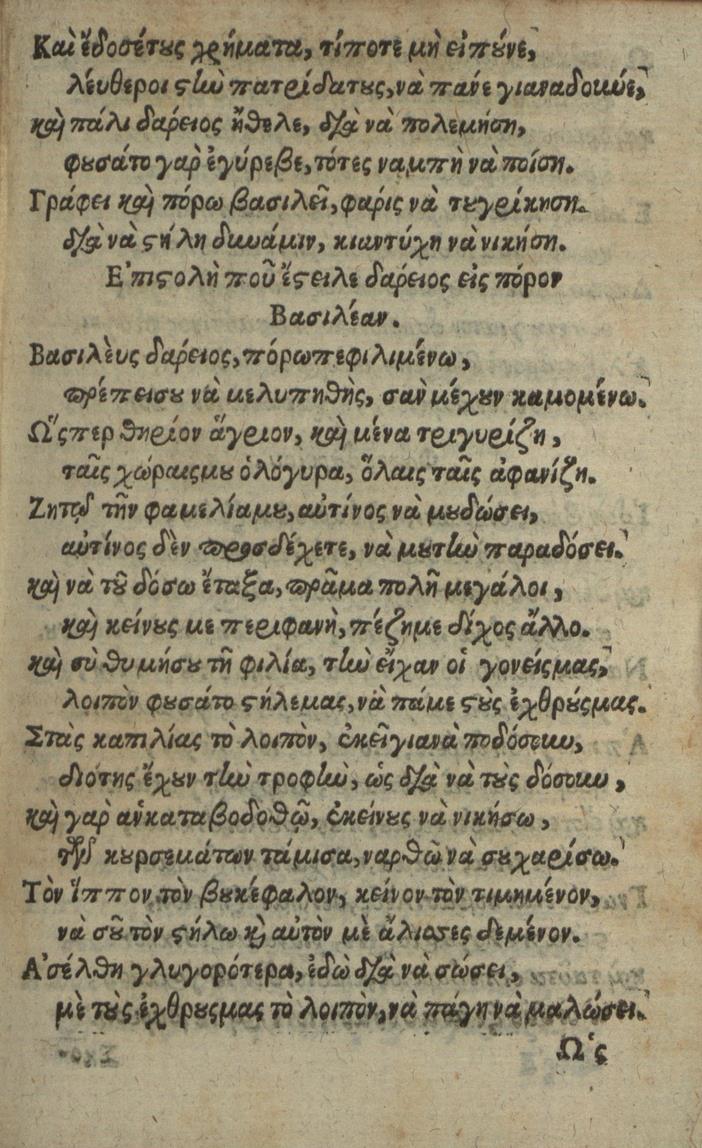 Καὶ ἔδοσέτους χρήματα, τίποτε μὴ εἰποῦνε,
λέυθεροι στὴν πατρίδατους, νὰ πανέ γιαναδοκιῦε,
καὶ πάλι δαρεῖος ἤθελε, διὰ νὰ πολεμήση,
φουσάτο γαρ ἐγύρεβε, τότες ναμπὴ νὰ ποίση.
Γράφει καὶ πόρω βασιλεῖ, φαρίς νὰ τουγρίκηση.
διὰ νὰ στήλη δυνάμιν, κιαντύχη νὰ νικήση.
Ἐπιστολὴ ποῦ ἔστειλε δαρεῖος εἰς πόρον
Βασιλέαν.
Βασιλὲυς δαρεῖος, πόρωπεφιλιμένω,
πρέπεισου νὰ μελυπηθῆς, σαν μέχουν καμομένω.
Ὥσπερ θηρίον ἄγριον, καὶ μένα τριγυρίζη,
ταῖς χώραιςμου ὁλόγυρα, ὅλαις ταῖς ἀφανίζη.
Ζητῶ τῆν φαμελίαμου, αὐτίνος νὰ μουδώσει,
αὐτίνος δὲν προσδέχετε, νὰ μουτὴν παραδόσει.
καὶ νὰ τοῦ δόσω ἔταξα, πρᾶμα πολῆ μεγάλοι,
καὶ κείνους με περιφανὴ, πέζημε δίχος ἄλλο.
καὶ σὺ θυμήσου τῆ φιλία, τὴν εἶχαν οἱ γονείςμας,
λοιπὸν φουσάτο στήλεμας, νὰ πάμε στοὺς ἐχθρούςμας.
Στὰς καπιλίας τὸ λοιπὸν, ἐκεῖ γιανὰ ποδόσουν,
διότης ἔχουν τὴν τροφὴν, ὡς διὰ νὰ τοὺς δόσουν,
καὶ γαρ ἂνκαταβοδοθῶ, ἐκείνους νὰ νικήσω,
τῶν κουρσεμάτων τάμισα, ναρθὼ νὰ σουχαρίσω.
Τὸν ἵππον τὸν βουκέφαλον, κείνον τὸν τιμημένον,
νὰ σοῦ τὸν στήλω καὶ αὐτὸν μὲ ἄλισσες δεμένον.
Ἀσέλθη γλυγορότερα, ἐδὼ διὰ νὰ σώσει,
μὲ τοὺς ἐχθρουςμας τὸ λοιπὸν, νὰ πάγη νὰ μαλώσει.
Ὥς